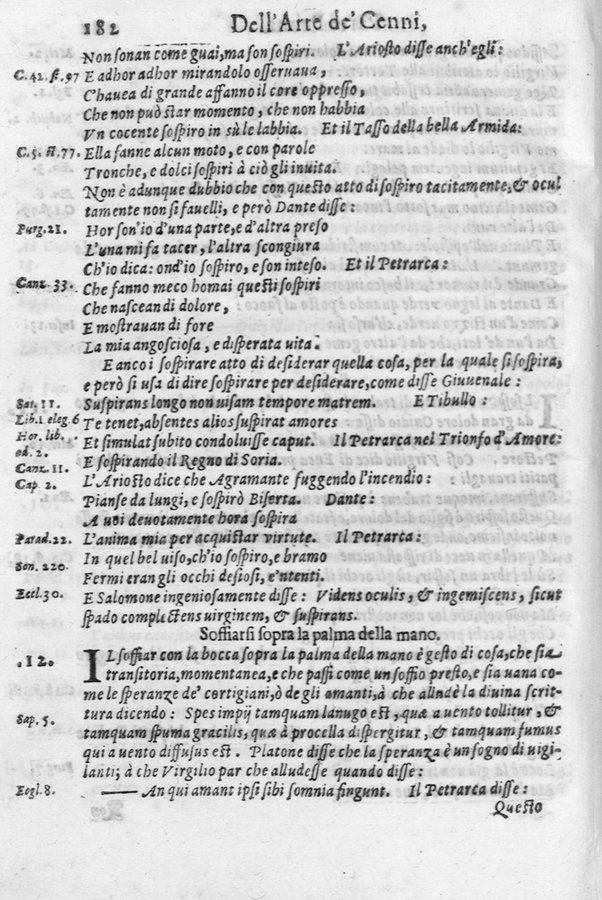 182 Dell'Arte de' Cenni,
Non sonan come guai, ma son sospiri. L'Ariosto disse anch'egli:
C. 42. st. 97 E adhor adhor mirandolo osseruaua,
C'hauea di grande affanno il core oppresso,
Che non può star momento, che non habbia
Vn cocente sospiro in sù le labbia. Et il Tasso della bella Armida:
C. 5. st. 77. Ella fanne alcun moto, e con parole
Tronche, e dolci sospiri à ciò gli inuita.
Non è adunque dubbio che con questo atto di sospiro tacitamente, & ocul
tamente non si fauelli, e però Dante disse:
Purg. 21. Hor son'io d'una parte, e d'altra preso
L'una mi fa tacer, l'altra scongiura
Ch'io dica: ond'io sospiro, e son inteso. Et il Petrarca:
Canz. 33. Che fanno meco homai questi sospiri
Che nascean di dolore,
E mostrauan di fore
La mia angosciosa, e disperata uita.
E anco i sospirare atto di desiderar quella cosa, per la quale si sospira,
e però si usa di dire sospirare per desiderare, come disse Giuuenale:
Sat. 11. Suspirans longo non uisam tempore matrem. E Tibullo:
Lib. 1 eleg. 6 Te tenet, absentes alios suspirat amores
Hor. lib. Et simulat subito condoluisse caput. Il Petrarca nel Trionfo d'Amore:
od. 2.
Canz. 11. E sospirando il Regno di Soria.
Cap. 2. L'Ariosto dice che Agramante fuggendo l'incendio:
Pianse da lungi, e sospirò Biserta. Dante:
A uoi deuotamente hora sospira
Parad. 22. L'anima mia per acquistar virtute. Il Petrarca:
Son. 220. In quel bel uiso, ch'io sospiro, e bramo
Fermi eran gli occhi desiosi, e'ntenti.
Eccl. 30. E Salomone ingeniosamente disse: Videns oculis, & ingemiscens, sicut
spado complectens uirginem, & suspirans.
Soffiarsi sopra la palma della mano.
.12. IL soffiar con la bocca sopra la palma della mano è gesto di cosa, che sia
transitoria, momentanea, e che passi come un soffio presto, e sia uana co-
me le speranze de' cortigiani, ò de gli amanti, à che allude la diuina scrit-
tura dicendo: Spes impij tamquam lanugo est, quæ a uento tollitur, &
Sap. 5. tamquam spuma gracilis, quæ à procella dispergitur, & tamquam fumus
qui a uento diffusus est. Platone disse che la speranza è un sogno di uigi-
lanti; à che Virgilio par che alludesse quando disse:
Eogl. 8. —— An qui amant ipsi sibi somnia fingunt. Il Petrarca disse:
Questo